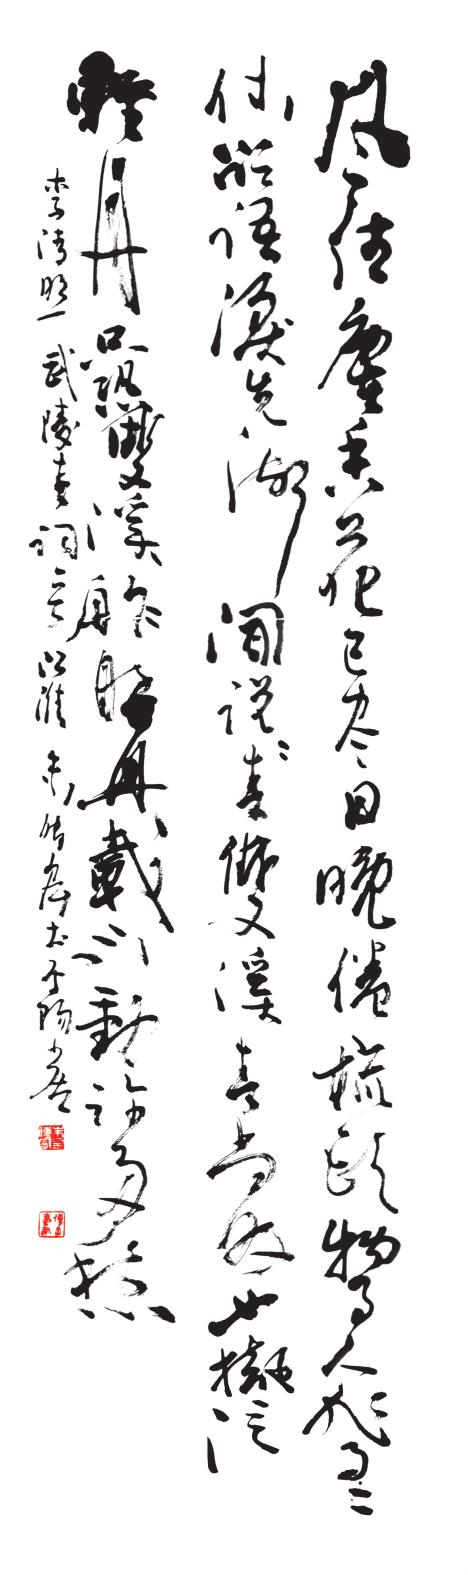 風住塵香花已尽日晚倦梳頭物是人非事〻
休欲語淚先流聞說春雙溪春尚好也擬泛
輕舟只恐雙溪舴艋舟載不動許多愁
李清照武陵春詞